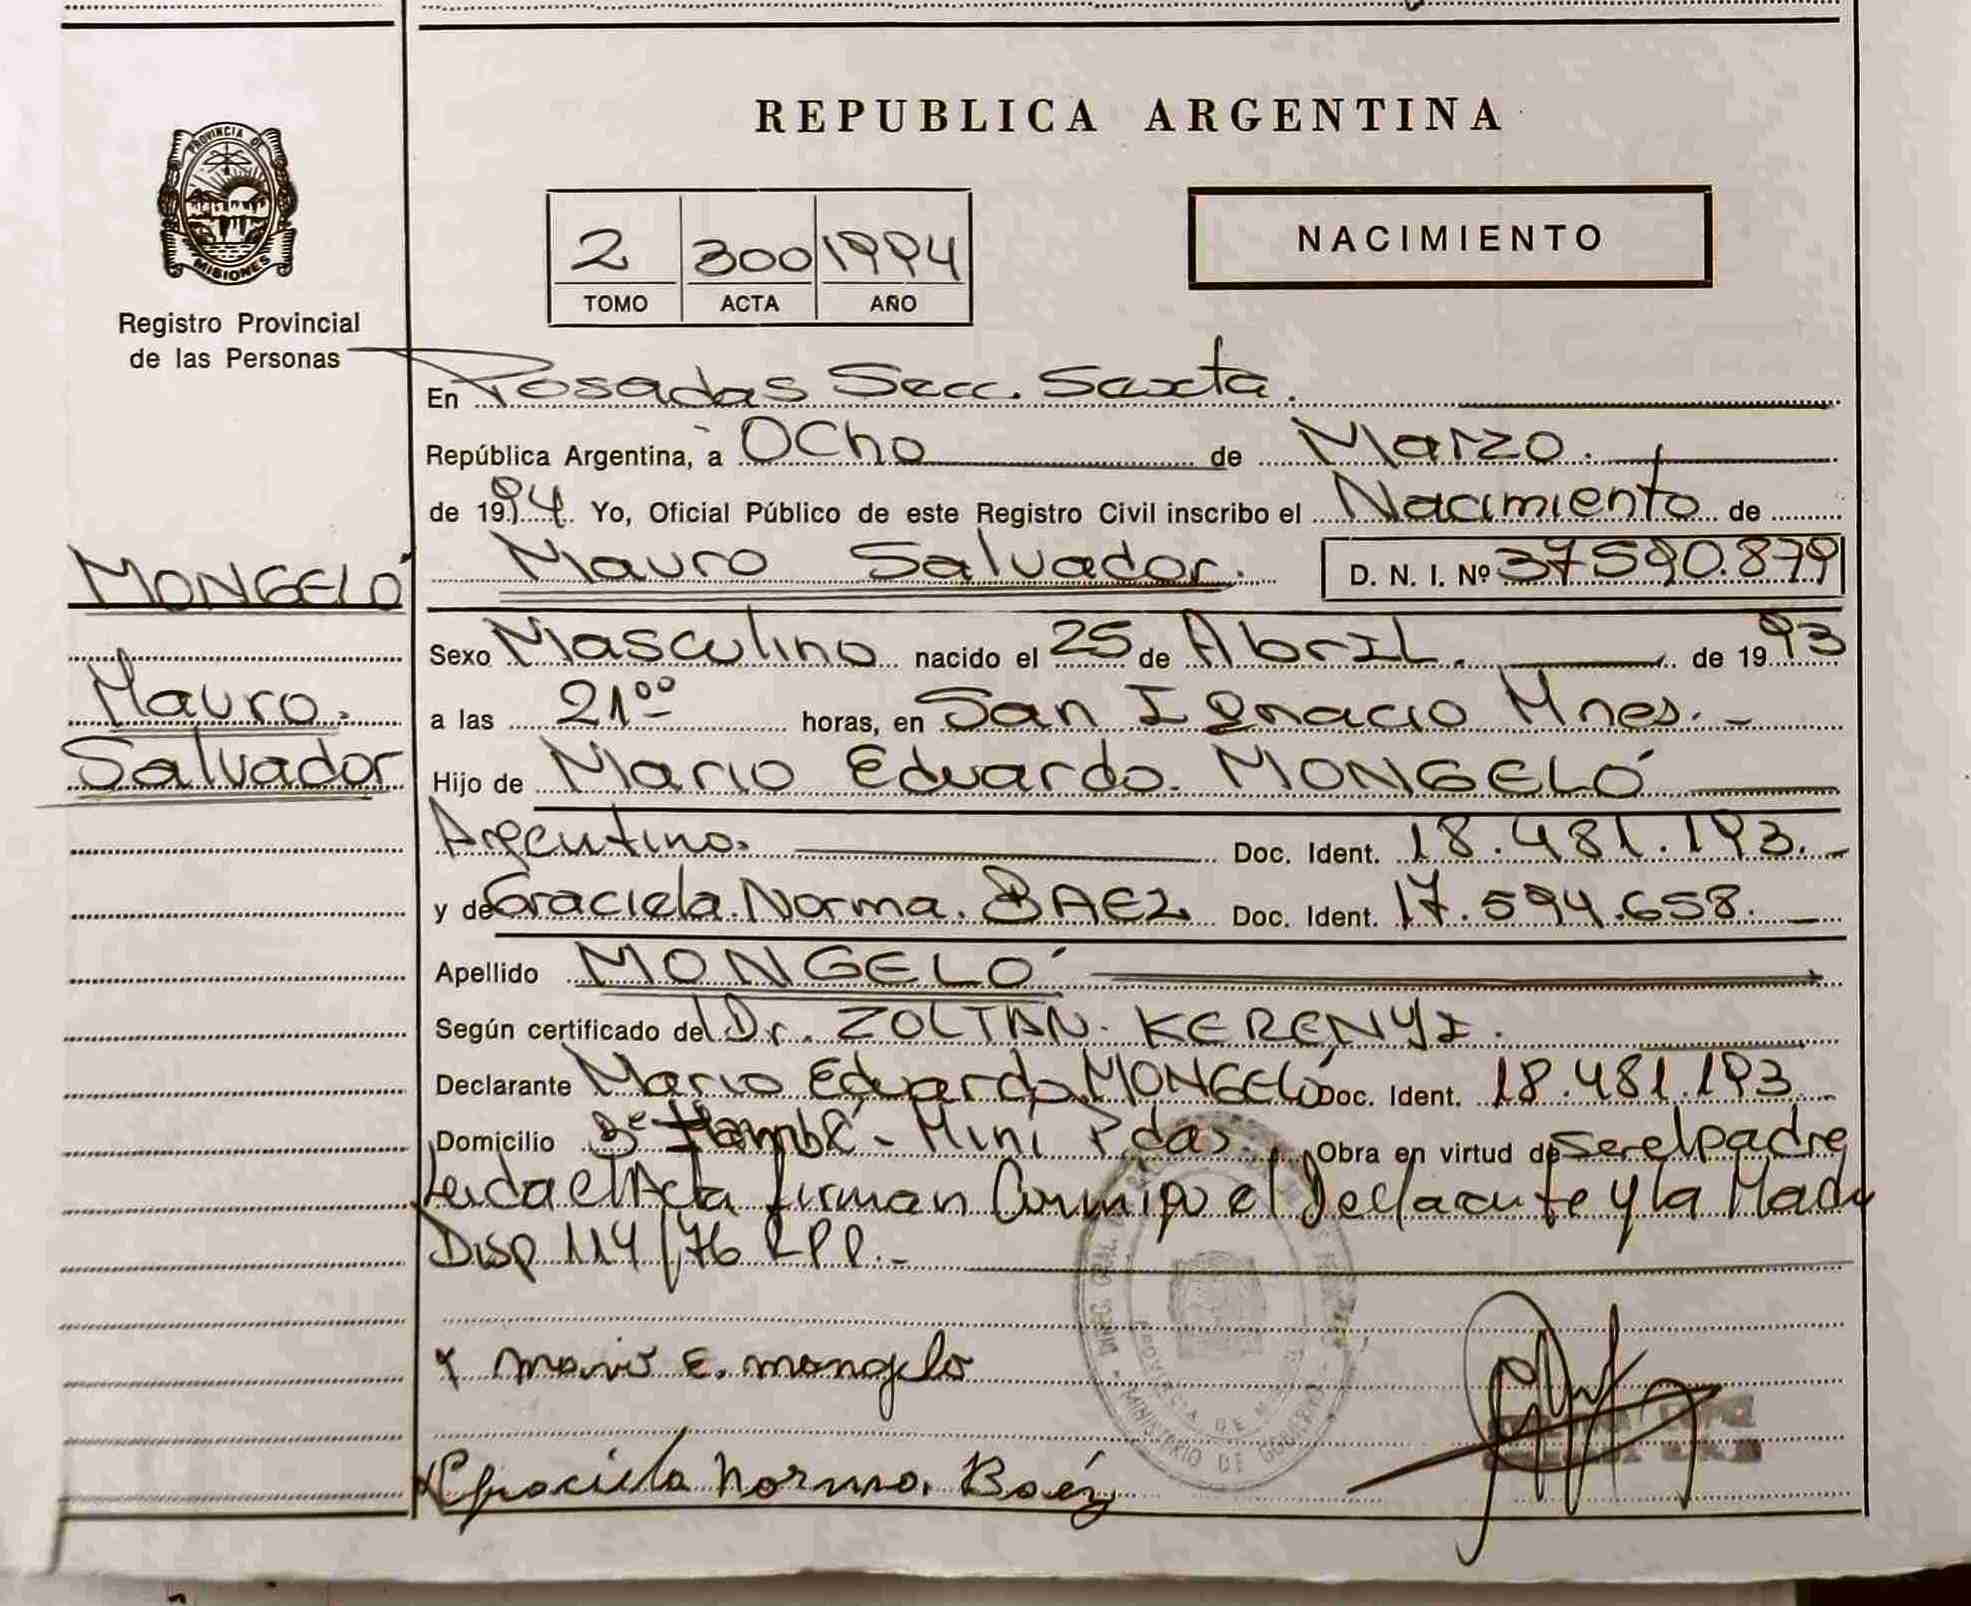 REPUBLICA ARGENTINA
PROVINCIA DE
MISIONES
Registro Provincial
de las Personas
2 300 1994
TOMO ACTA AÑO
NACIMIENTO
En Posadas Secc. Sexta.
República Argentina, a Ocho de Marzo.
de 1994. Yo, Oficial Público de este Registro Civil inscribo el Nacimiento de
MONGELÓ
Mauro Salvador. D. N. I. Nº 37590.879
Sexo Masculino nacido el 25 de Abril. de 1993
Mauro.
a las 21ºº horas, en San Ignacio Mnes. -
Salvador
Hijo de Mario Eduardo. MONGELÓ
Argentino. Doc. Ident. 18.481.193.-
y de Graciela. Norma. BAEZ Doc. Ident. 17.594.658. -
Apellido MONGELÓ
Según certificado del Dr. ZOLTAN. KERENYI.
Declarante Mario Eduardo. MONGELÓ Doc. Ident. 18.481.193 -
Domicilio - Mini Pdas. Obra en virtud de ser el padre
Leida el Acta firman Conmigo el Declarante y la Madre
Disp 114/76 RPP.-
x Mario E. mongelo
x Graciela Norma. Baéz
MINISTERIO DE GOBIERNO